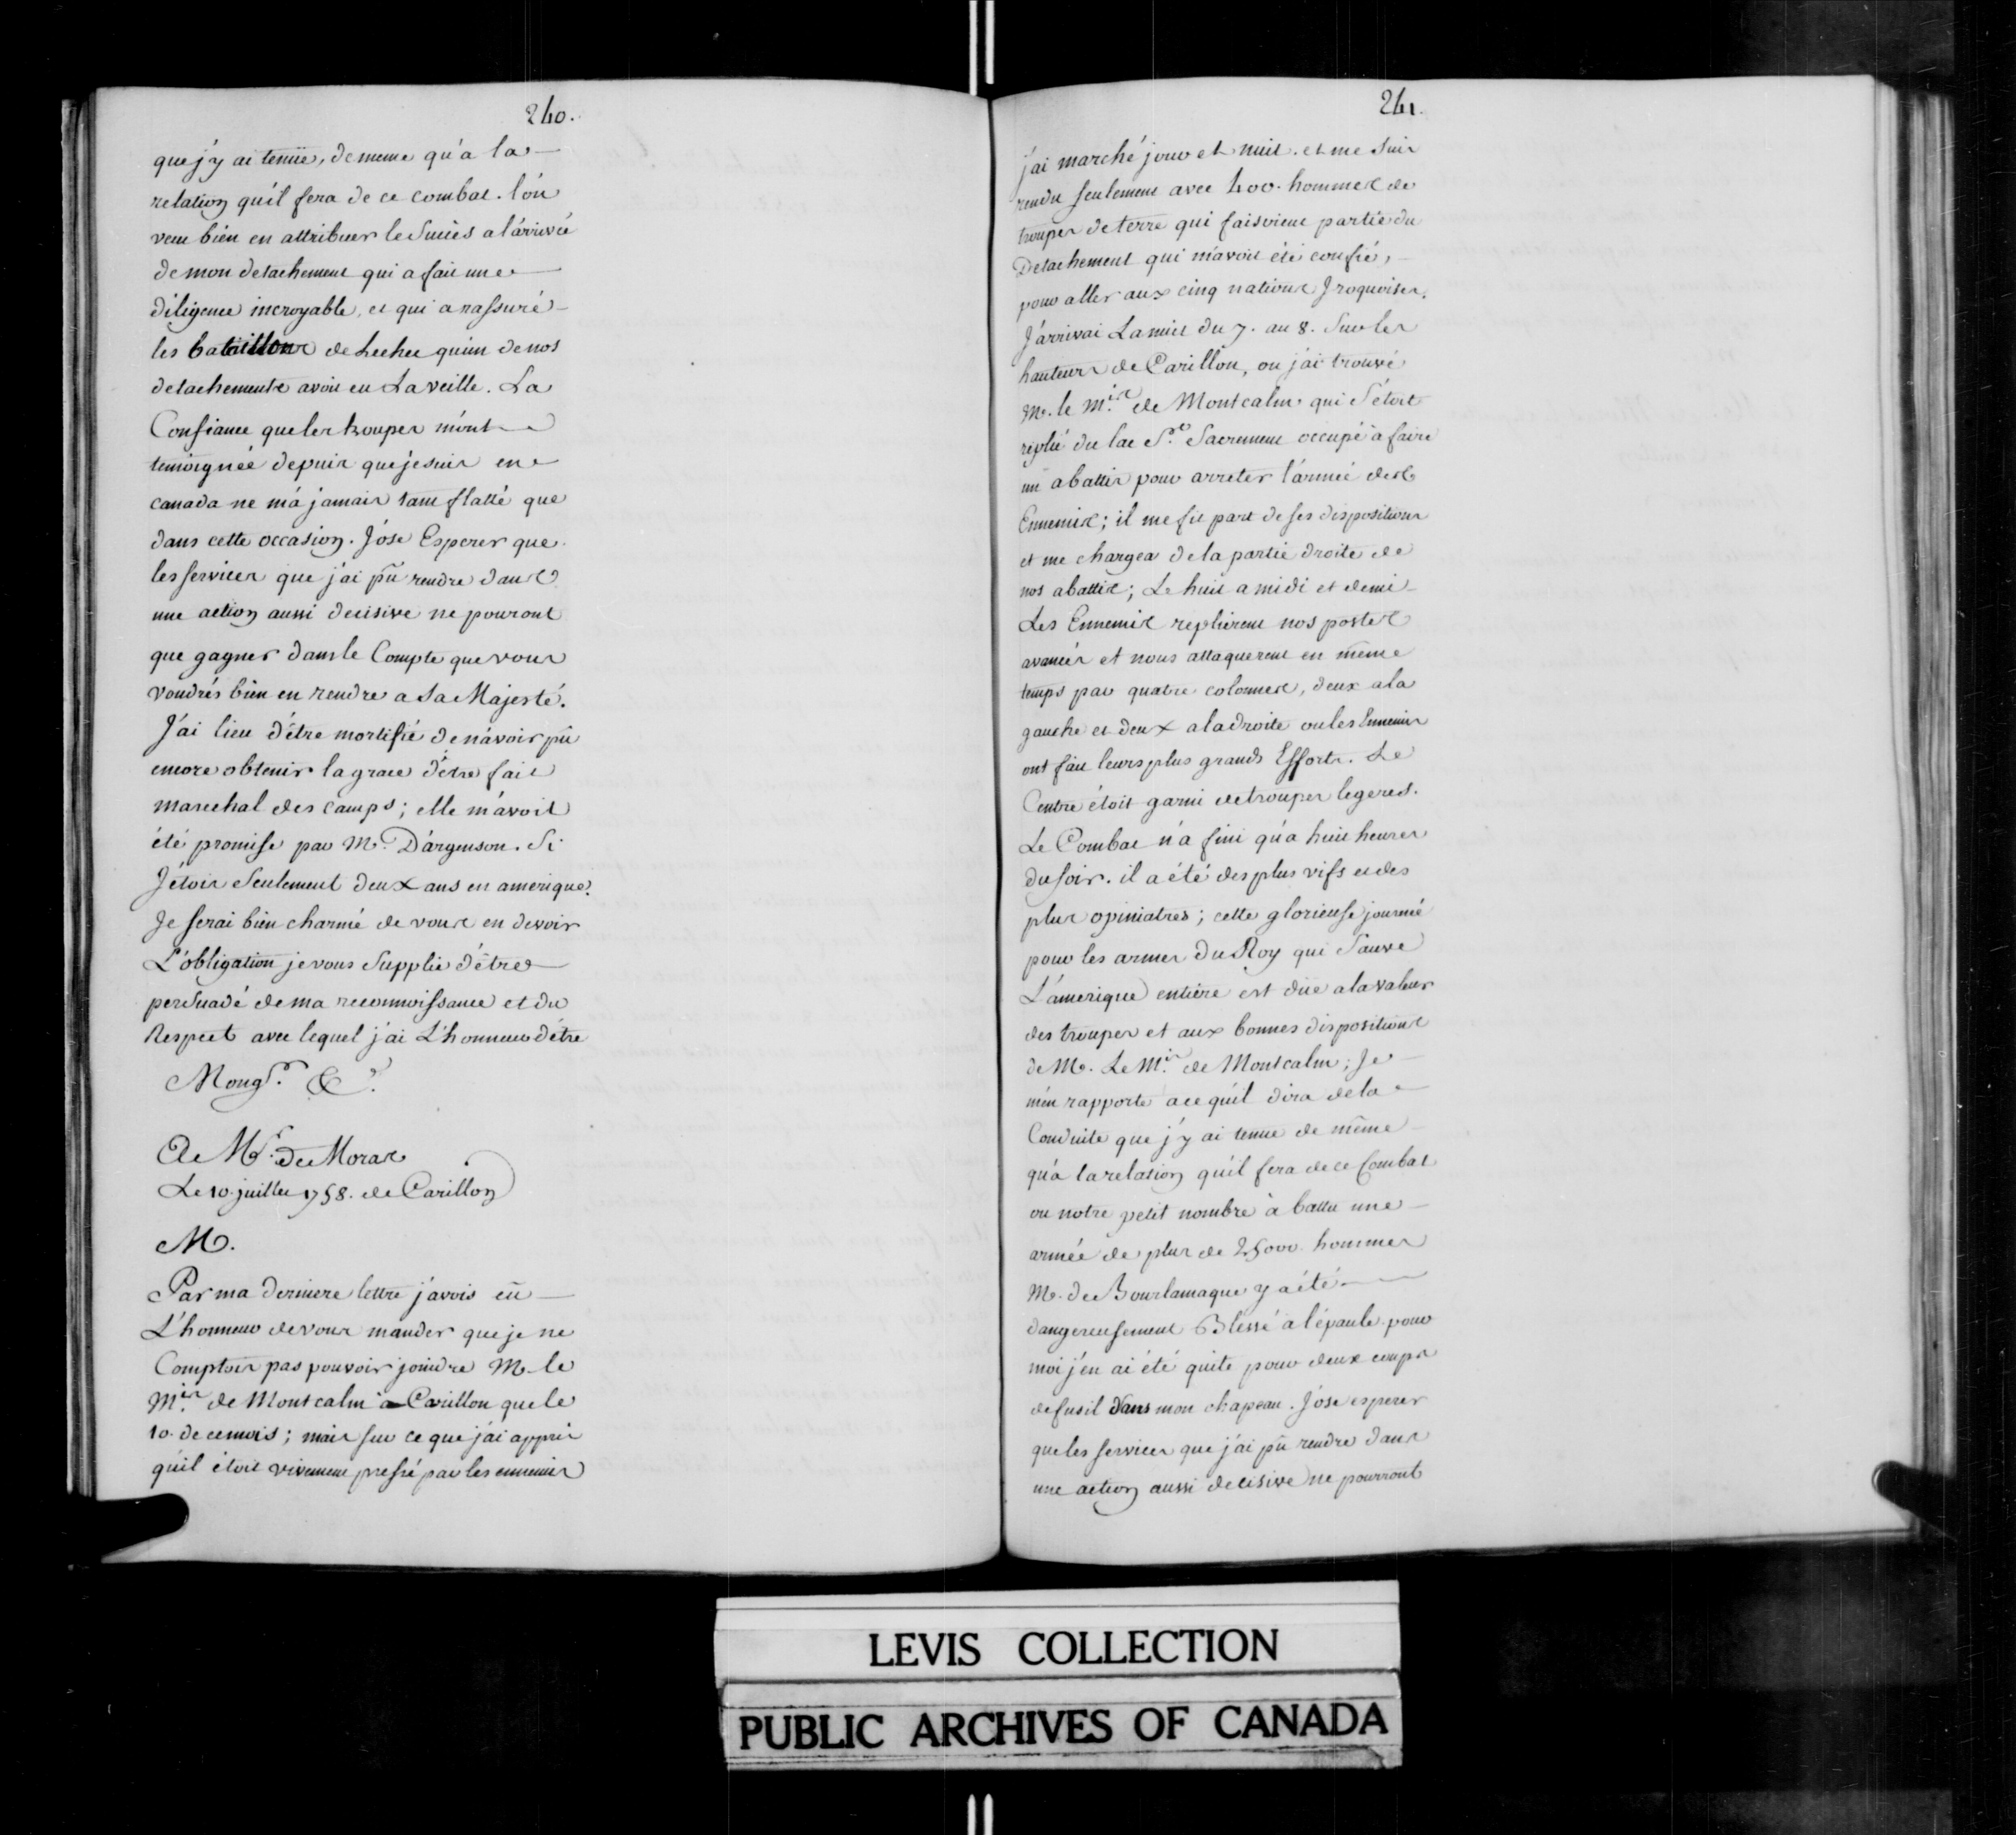 240.
que j'y ai tenüe, de meme qu'a la
relation qu'il fera de ce combat. l'on
veut bien en attribuer le Succès a l'arrivée
de mon detachement qui a fait une
diligence incroyable, et qui a rassuré
les bataillons de Lechec qu'un de nos
detachements avoit eu La veille. La
Confiance que les troupes m'ont
temoignée depuis que je suis en
canada ne m'a jamais tant flatté que
dans cette occasion. J'ose Esperer que
les services que j'ai pû rendre dans
une action aussi decisive ne pouront
que gagner dans le Compte que vous
voudrés bien en rendre a Sa Majesté.
J'ai lieu d'être mortifié de n'avoir pû
encore obtenir la grace d'être fait
marechal des camps; elle m'avoit
été promise par Mr. D'argenson. Si
J'étois Seulement deux ans en amerique.
Je serai bien charmé de vous en devoir
L'obligation je vous Supplie d'être
persuadé de ma reconnoissance et du
Respect avec lequel j'ai L'honneur d'être
Mongr. &c.
A Mr. de Moras
Le 10. juillet 1758. de Carillon
M.
Par ma derniere lettre j'avois eû
L'honneur de vous mander que je ne
Comptois pas pouvoir joindre M. le
Mis. de Montcalm à Carillon que le
10. de ce mois; mais sur ce que j'ai appris
qu'il étoit vivement pressé par les ennemis
241.
j'ai marché jour et nuit. et me suis
rendu seulement avec 400. hommes de
troupes de terre qui faisoient partie du
Detachement qui m'avoit été confié,
pour aller aux cinq nations Iroquoises.
J'arrivai La nuit du 7. au 8. Sur les
hauteurs de Carillon, ou j'ai trouvé
M. le Mis. de Montcalm qui s'étoit
replié du lac St. Sacrement occupé à faire
un abattis pour arreter l'armée des
Ennemis; il me fit part de ses dispositions
et me chargea de la partie droite de
nos abattis; Le huit a midi et demi
Les Ennemis replierent nos postes
avancés et nous attaquerent en même
temps par quatre colonnes, deux a la
gauche et deux a la droite ou les Ennemis
ont fait leurs plus grands Efforts. Le
Centre étoit garni de troupes legeres.
Le Combat n'a fini qu'a huit heures
du soir. il a été des plus vifs et des
plus opiniatres; cette glorieuse journée
pour les armes Du Roy qui Sauve
L'amerique entière est düe a la valeur
des troupes et aux bonnes dispositions
de M. Le Mis. de Montcalm; Je
m'en rapporte a ce qu'il dira de la
Conduite que j'y ai tenue de même
qu'a la relation qu'il fera de ce Combat
ou notre petit nombre à battu une
armée de plus de 25000. hommes
M. de Bourlamaque y a été
dangereusement Blessé a l'épaule. pour
moi j'en ai été quite pour deux coups
de fusil dans mon chapeau. J'ose esperer
que les services que j'ai pû rendre dans
une action aussi decisive ne pourront
LEVIS COLLECTION
PUBLIC ARCHIVES OF CANADA